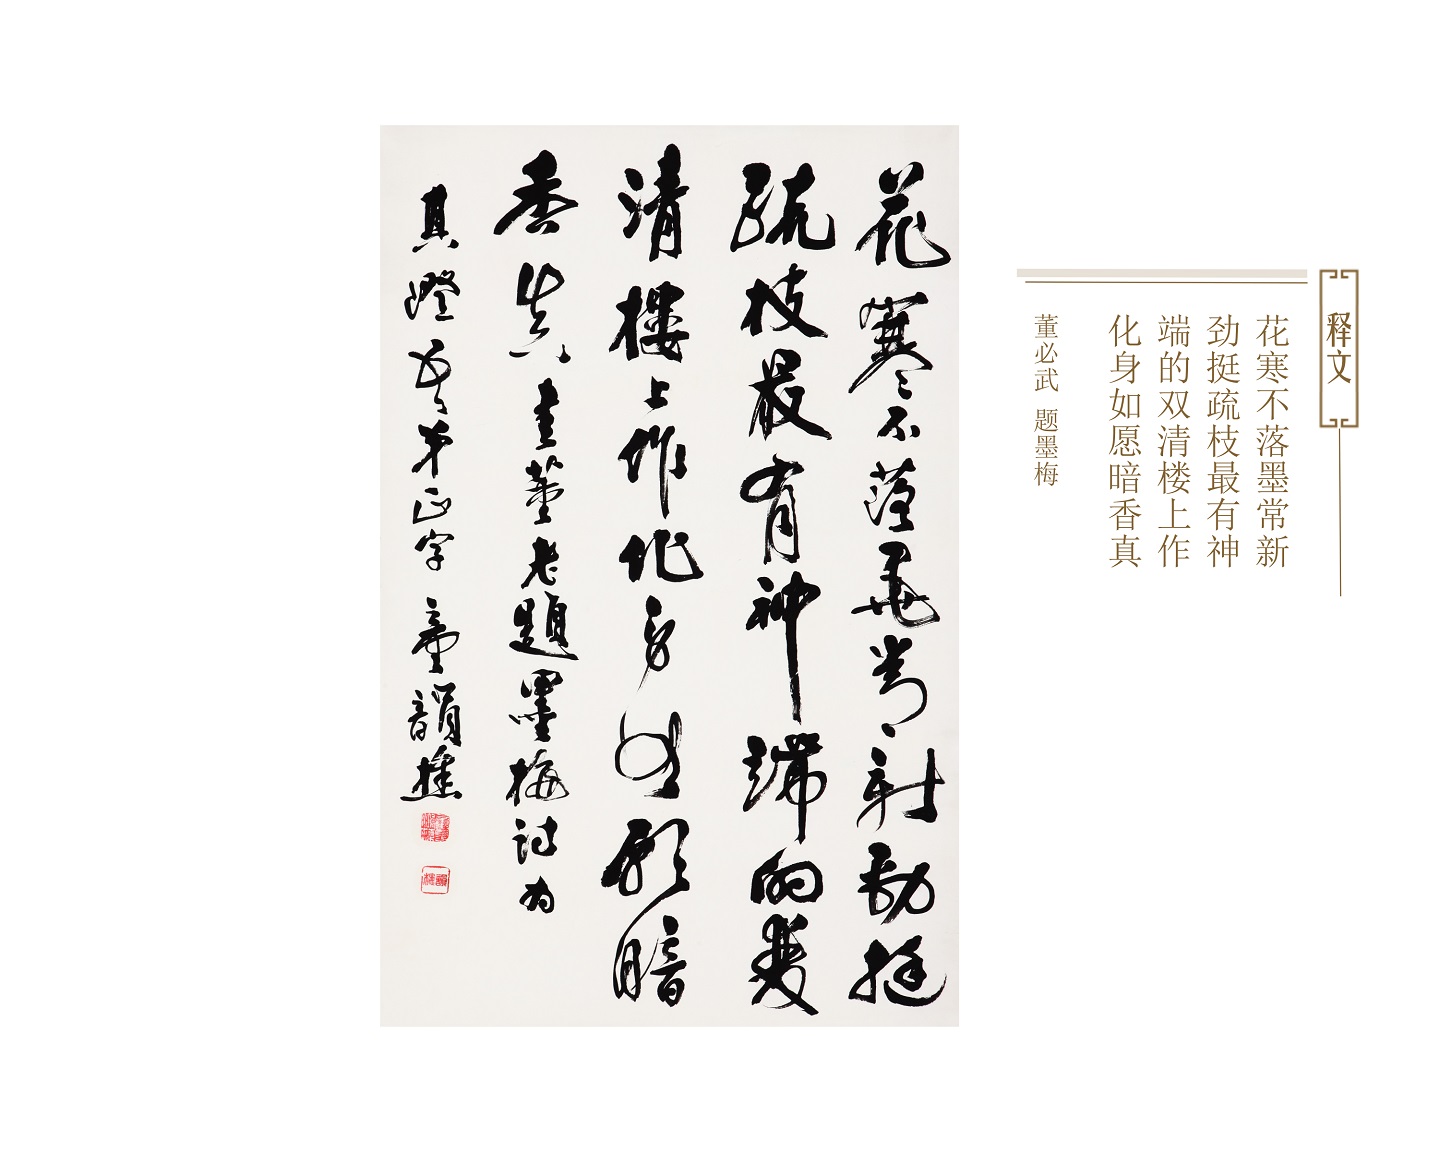 释文
花寒不落墨常新
劲挺疏枝最有神
端的双清楼上作
化身如愿暗香真
董必武 题墨梅
花寒不落墨常新劲挺
疏枝最有神端的双
清楼上作化身如愿暗
香真 书董老题墨梅诗为
真澄贤弟正字 童韵樵